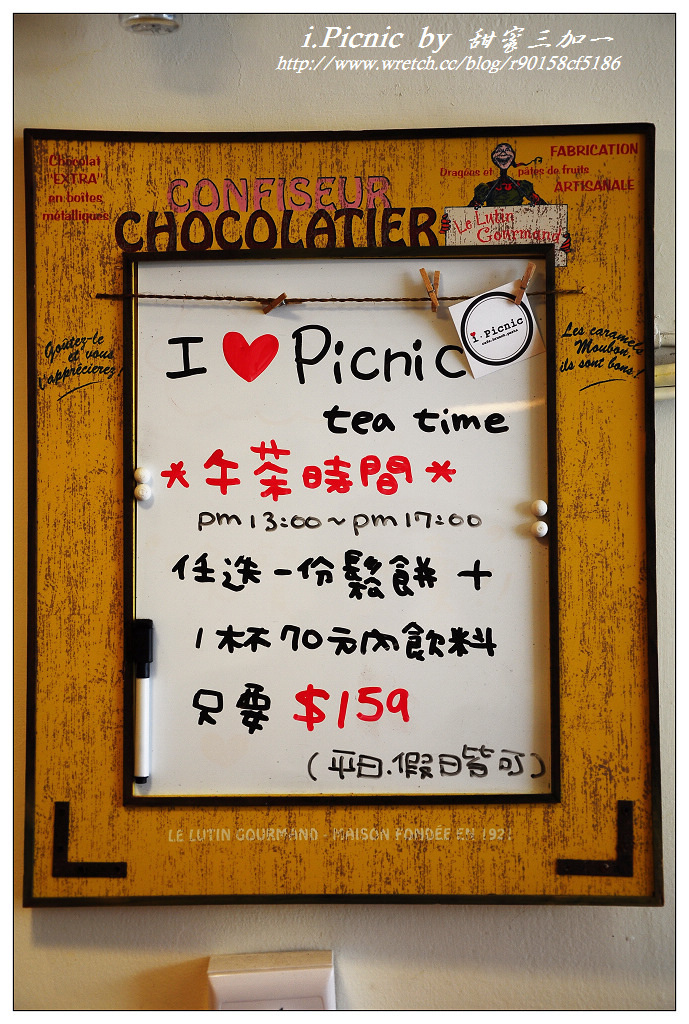 i.Picnic by 甜蜜三加一
http://www.wretch.cc/blog/r90158cf5186
Chocolat
"EXTRA"
en boîtes
métalliques
CONFISEUR
CHOCOLATIER
Dragées et pâtes de fruits
FABRICATION
ARTISANALE
Le Lutin
Gourmand
Goûtez-le
et vous
l'apprécierez!
Les caramels
Moubon,
ils sont bons!
i.Picnic
I ♥ Picnic
tea time
*午茶時間*
pm13:00~pm17:00
任选一份鬆餅+
1杯70元內飲料
只要 $159
(平日.假日皆可)
LE LUTIN GOURMAND - MAISON FONDÉE EN 1921